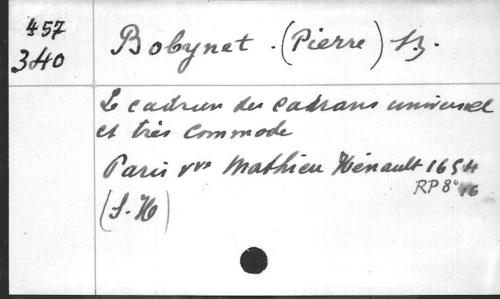 457
340
Bobynet. (Pierre) SJ.
Le cadran des cadrans universel
et très commode
Paris vve Mathieu Hénault 1654
RP 8° 16
(S-H)